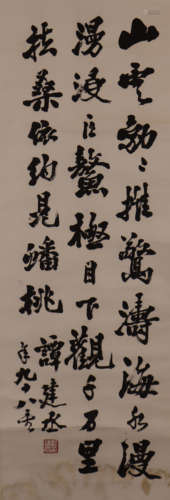 山雲勃々推驚濤海水漫
漫浸巨鰲極目下觀千万里
扶桑依約見蟠桃 譚建丞
年九十八